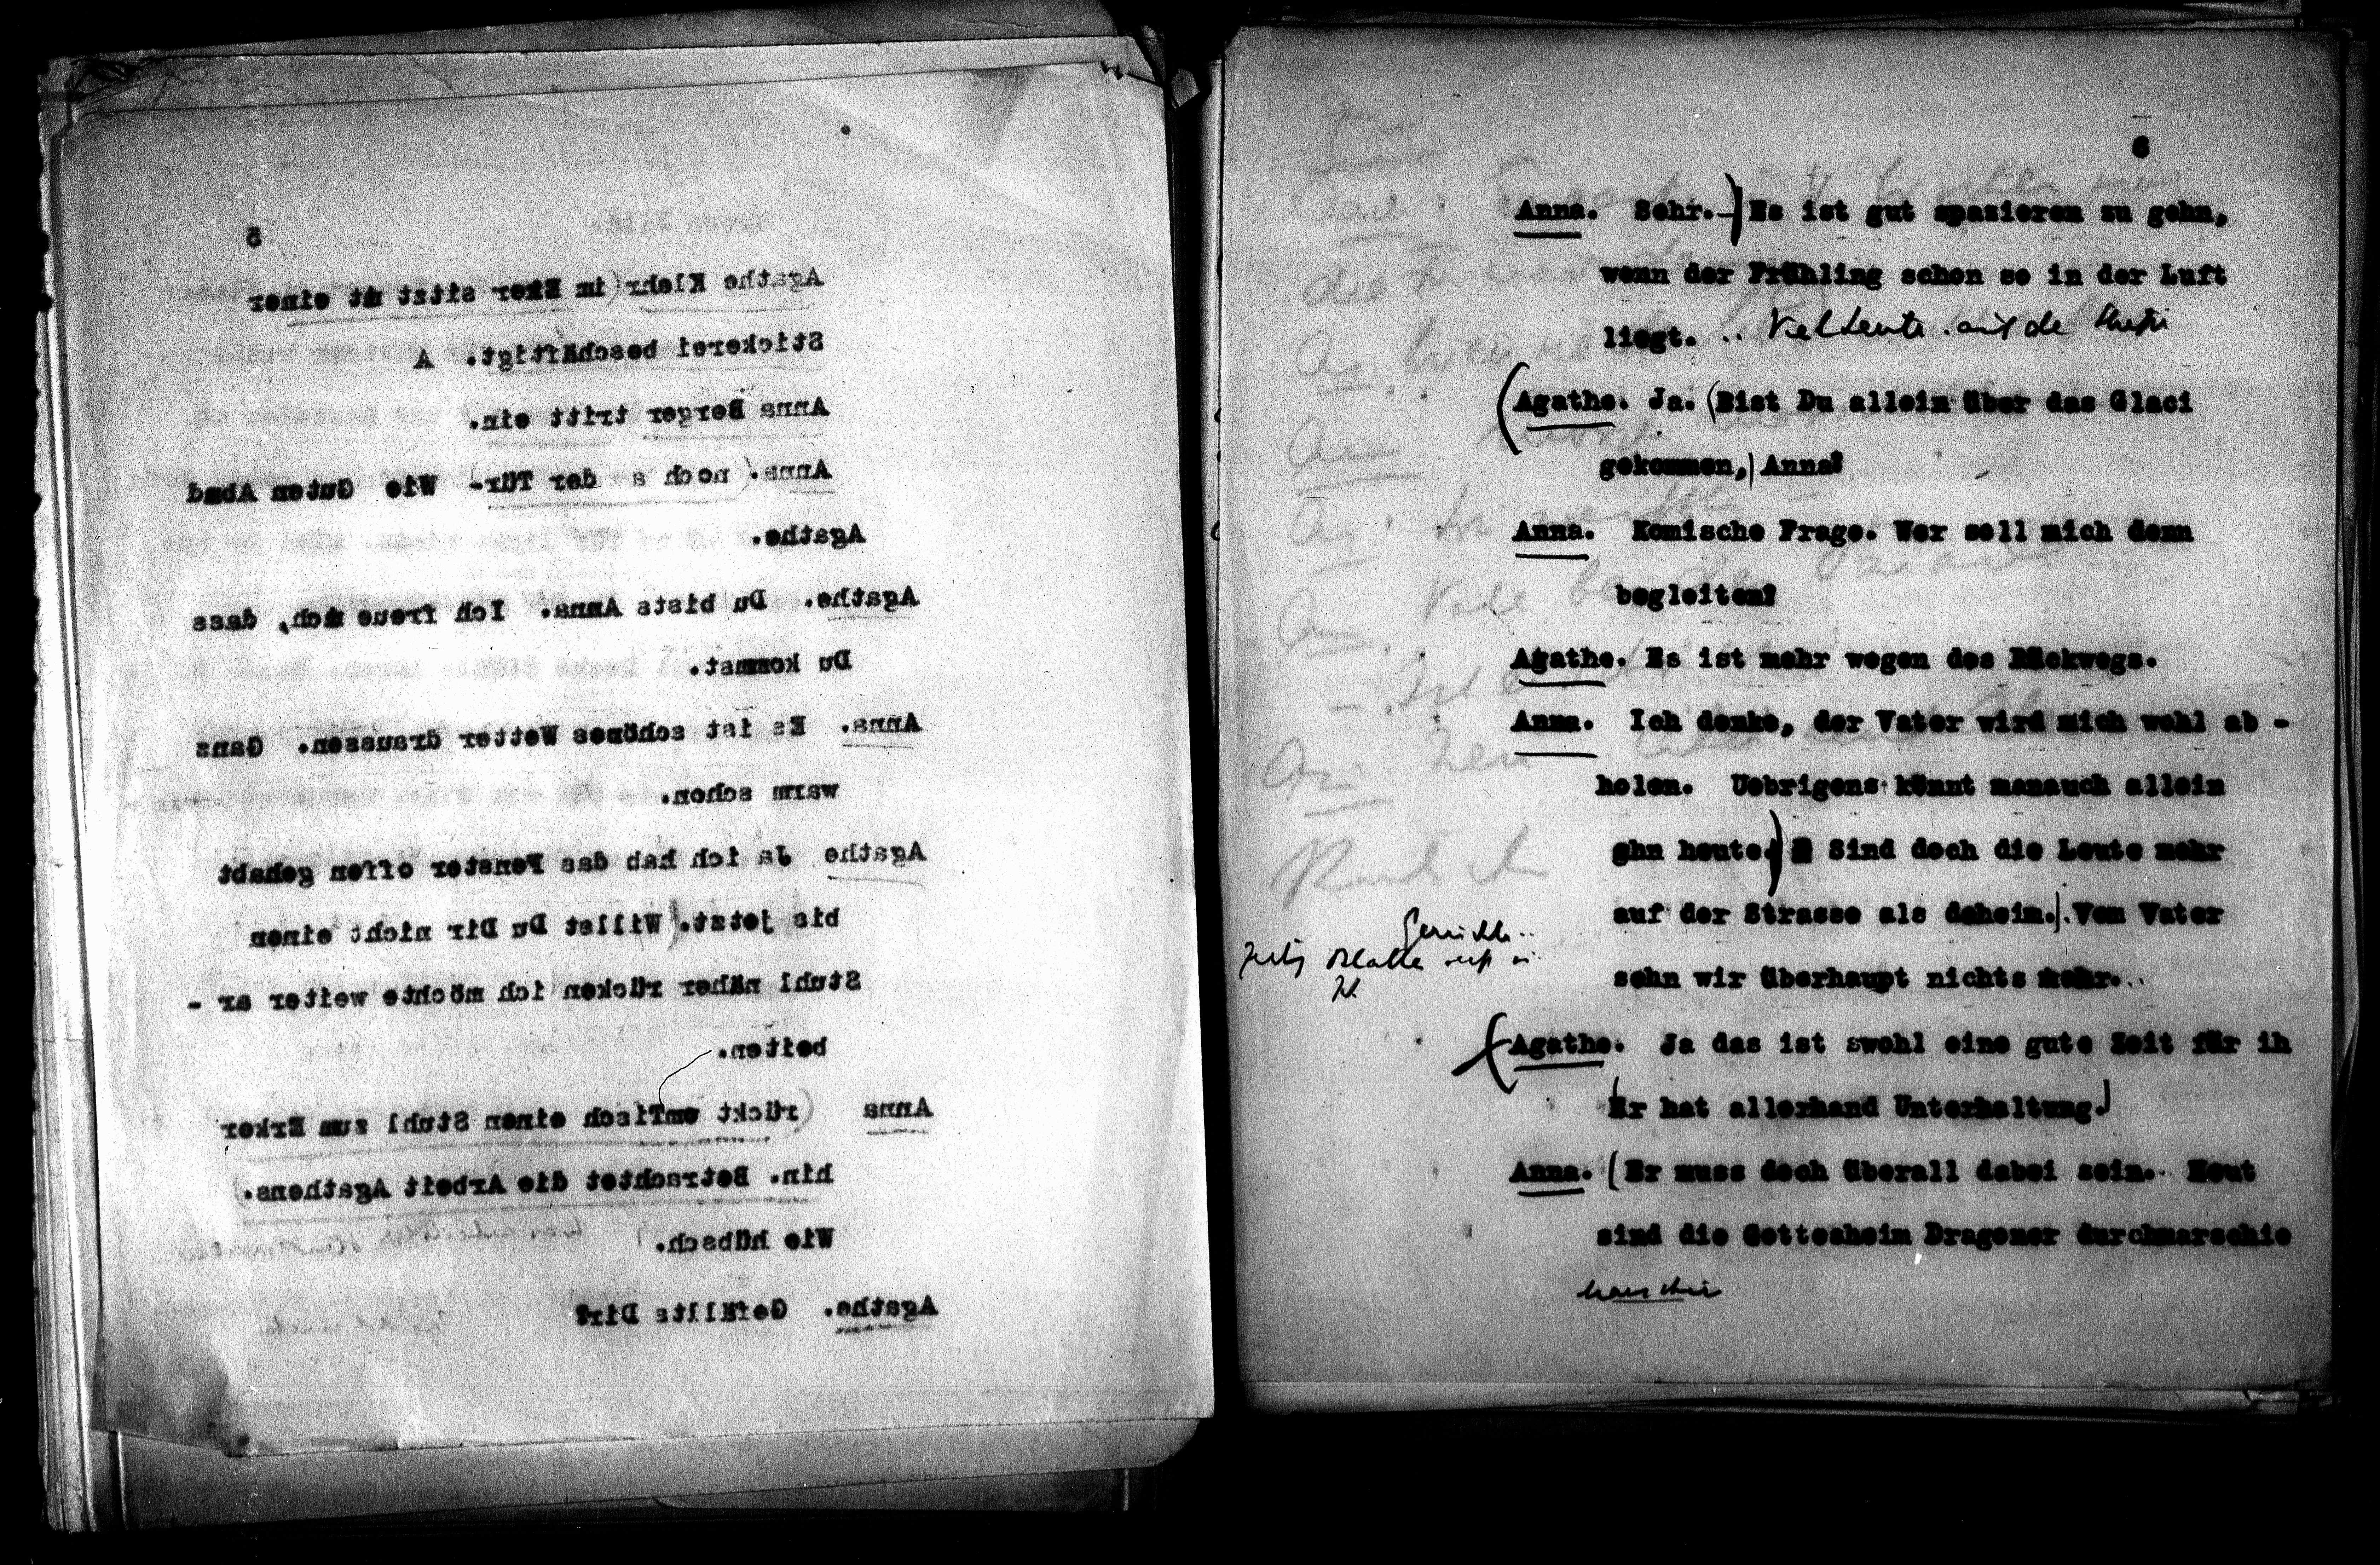 5
Agathe Klehr (im Erker sitzt mt einer
Stickerei beschäftigt. A
Anna Berger tritt ein.
Anna. (noch a der Tür- Wie Guten Abnd
Agathe.
Agathe. Du bists Anna. Ich freue mich, dass
Du kommst.
Anna. Es ist schönes Wetter draussen. Ganz
warm schon.
Agathe Ja ich hab das Fenster offen gehabt
bis jetzt. (Willst Du Dir nicht einen
Stuhl näher rücken ich möchte weiter ar -
beiten.
Anna (rückt einen Stuhl zum Erker
hin. Betrachtet die Arbeit Agathens.)
Wie hübsch.
Agathe. Gefällts Dir?
6
Anna. Sehr.-) Es ist gut spazieren zu gehn,
wenn der Frühling schon so in der Luft
liegt. .. Viel Leute auf de
(Agathe. Ja. (Bist Du allein über das Glaci
gekommen,) Anna?
Anna. Komische Frage. Wer soll mich denn
begleiten?
Agathe. Es ist mehr wegen des Rückwegs.
Anna. Ich denke, der Vater wird mich wohl ab -
holen. Uebrigens könnt manauch allein
ghn heute.) Sind doch die Leute mehr
auf der Strasse als daheim.) Vom Vater
sehn wir überhaupt nichts mehr..
(Agathe. Ja das ist swohl eine gute Zeit für ih
Er hat allerhand Unterhaltung.)
Anna. (Er muss doch überall dabei sein. Heut
sind die Gottesheim Dragoner durchmarschie